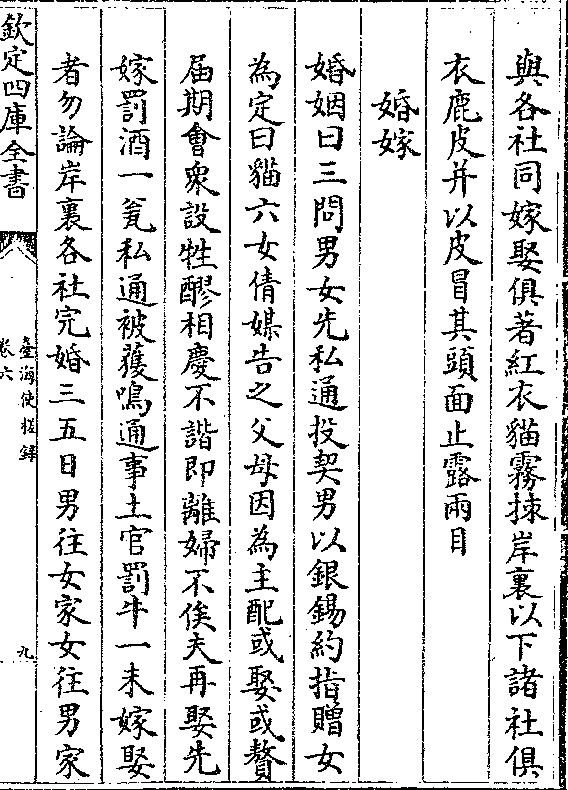 與各社同嫁娶俱著紅衣貓霧捒岸裏以下諸社俱
衣鹿皮并以皮冒其頭面止露兩目
婚嫁
婚姻曰三問男女先私通投契男以銀錫約指贈女
為定曰貓六女倩媒告之父母因為主配或娶或贅
届期會衆設牲醪相慶不諧即離婦不俟夫再娶先
嫁罰酒一瓮私通被獲鳴通事土官罰牛一未嫁娶
者勿論岸裏各社完婚三五日男往女家女往男家
欽定四庫全書
臺海使槎錄
卷六
九